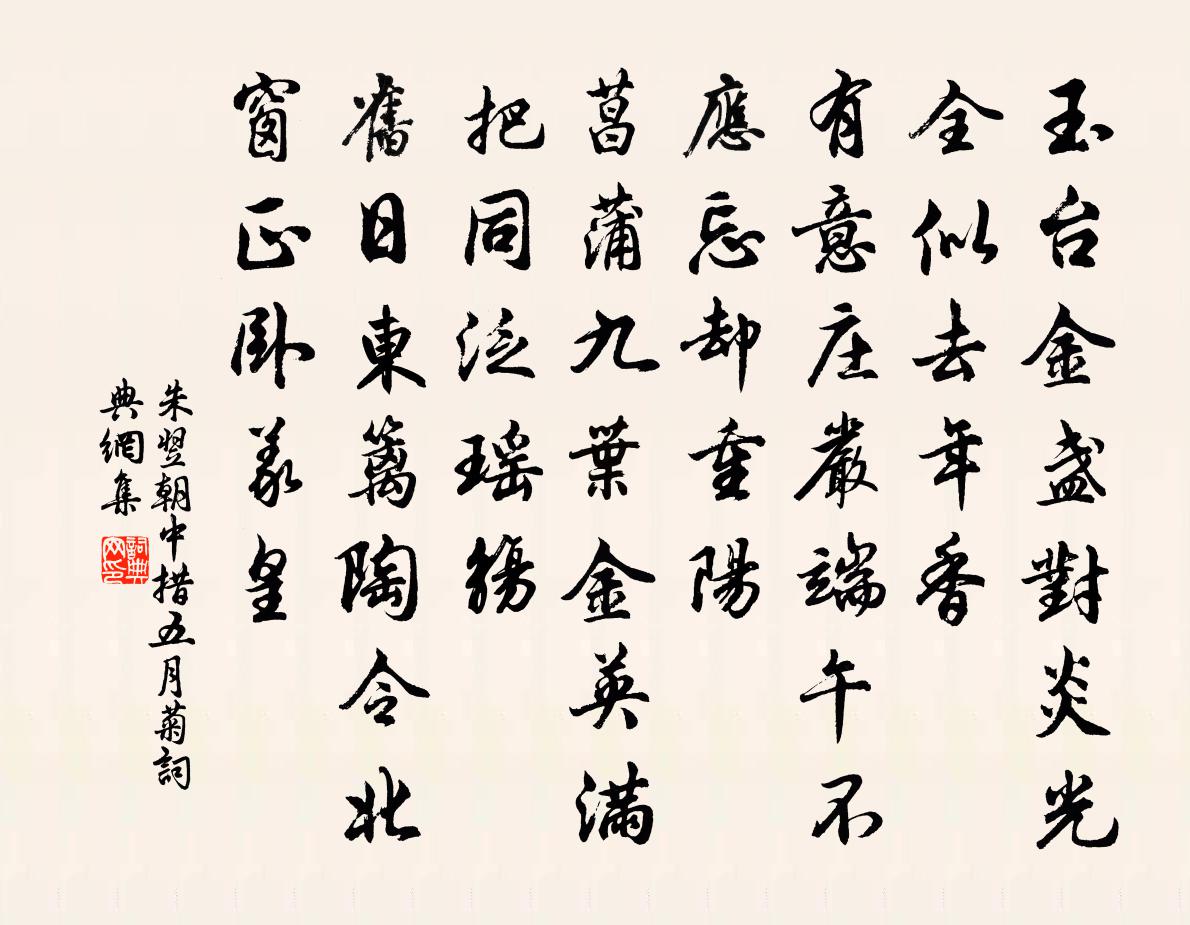 玉台金盞對炎光
全似去年香
有意庄嚴端午不
應忘却重陽
菖蒲九葉金英滿
把同泛瑶觴
舊日東籬陶令北
窗正卧羲皇
朱翌朝中措五月菊詞
典網集
詞典網印